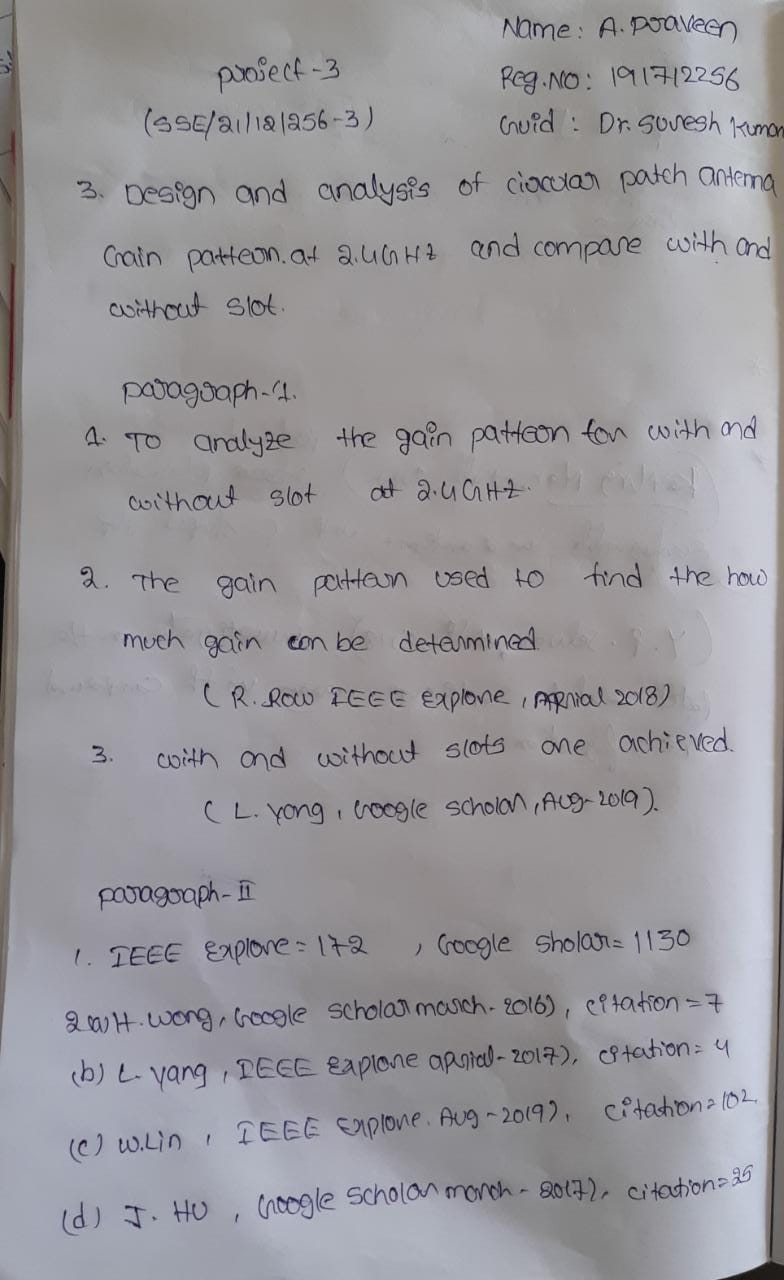 Name: A. Praveen
project-3
Reg.NO: 191712256
(SSE/21/12/256-3)
Guid: Dr. Suresh Kumar
3. Design and analysis of circular patch antenna
Gain pattern. at 2.4GHz and compare with and
without slot.
paragraph-1.
1. To analyze the gain pattern for with and
without slot at 2.4GHz.
2. The gain pattern used to find the how
much gain can be determined
(R. Row IEEE Explore, 2018)
3. with and without slots are achieved.
(L. Yang, Google scholar, Aug-2019).
paragraph-II
1. IEEE Explore=172, Google Sholar=1130
2 a) H. Wong, Google scholar march-2016), citation=7
(b) L. Yang, IEEE Explore 2017), citation=4
(c) W.Lin, IEEE Explore. Aug-2019), citation=102
(d) J. HU, Google scholar march-2017), citation=25